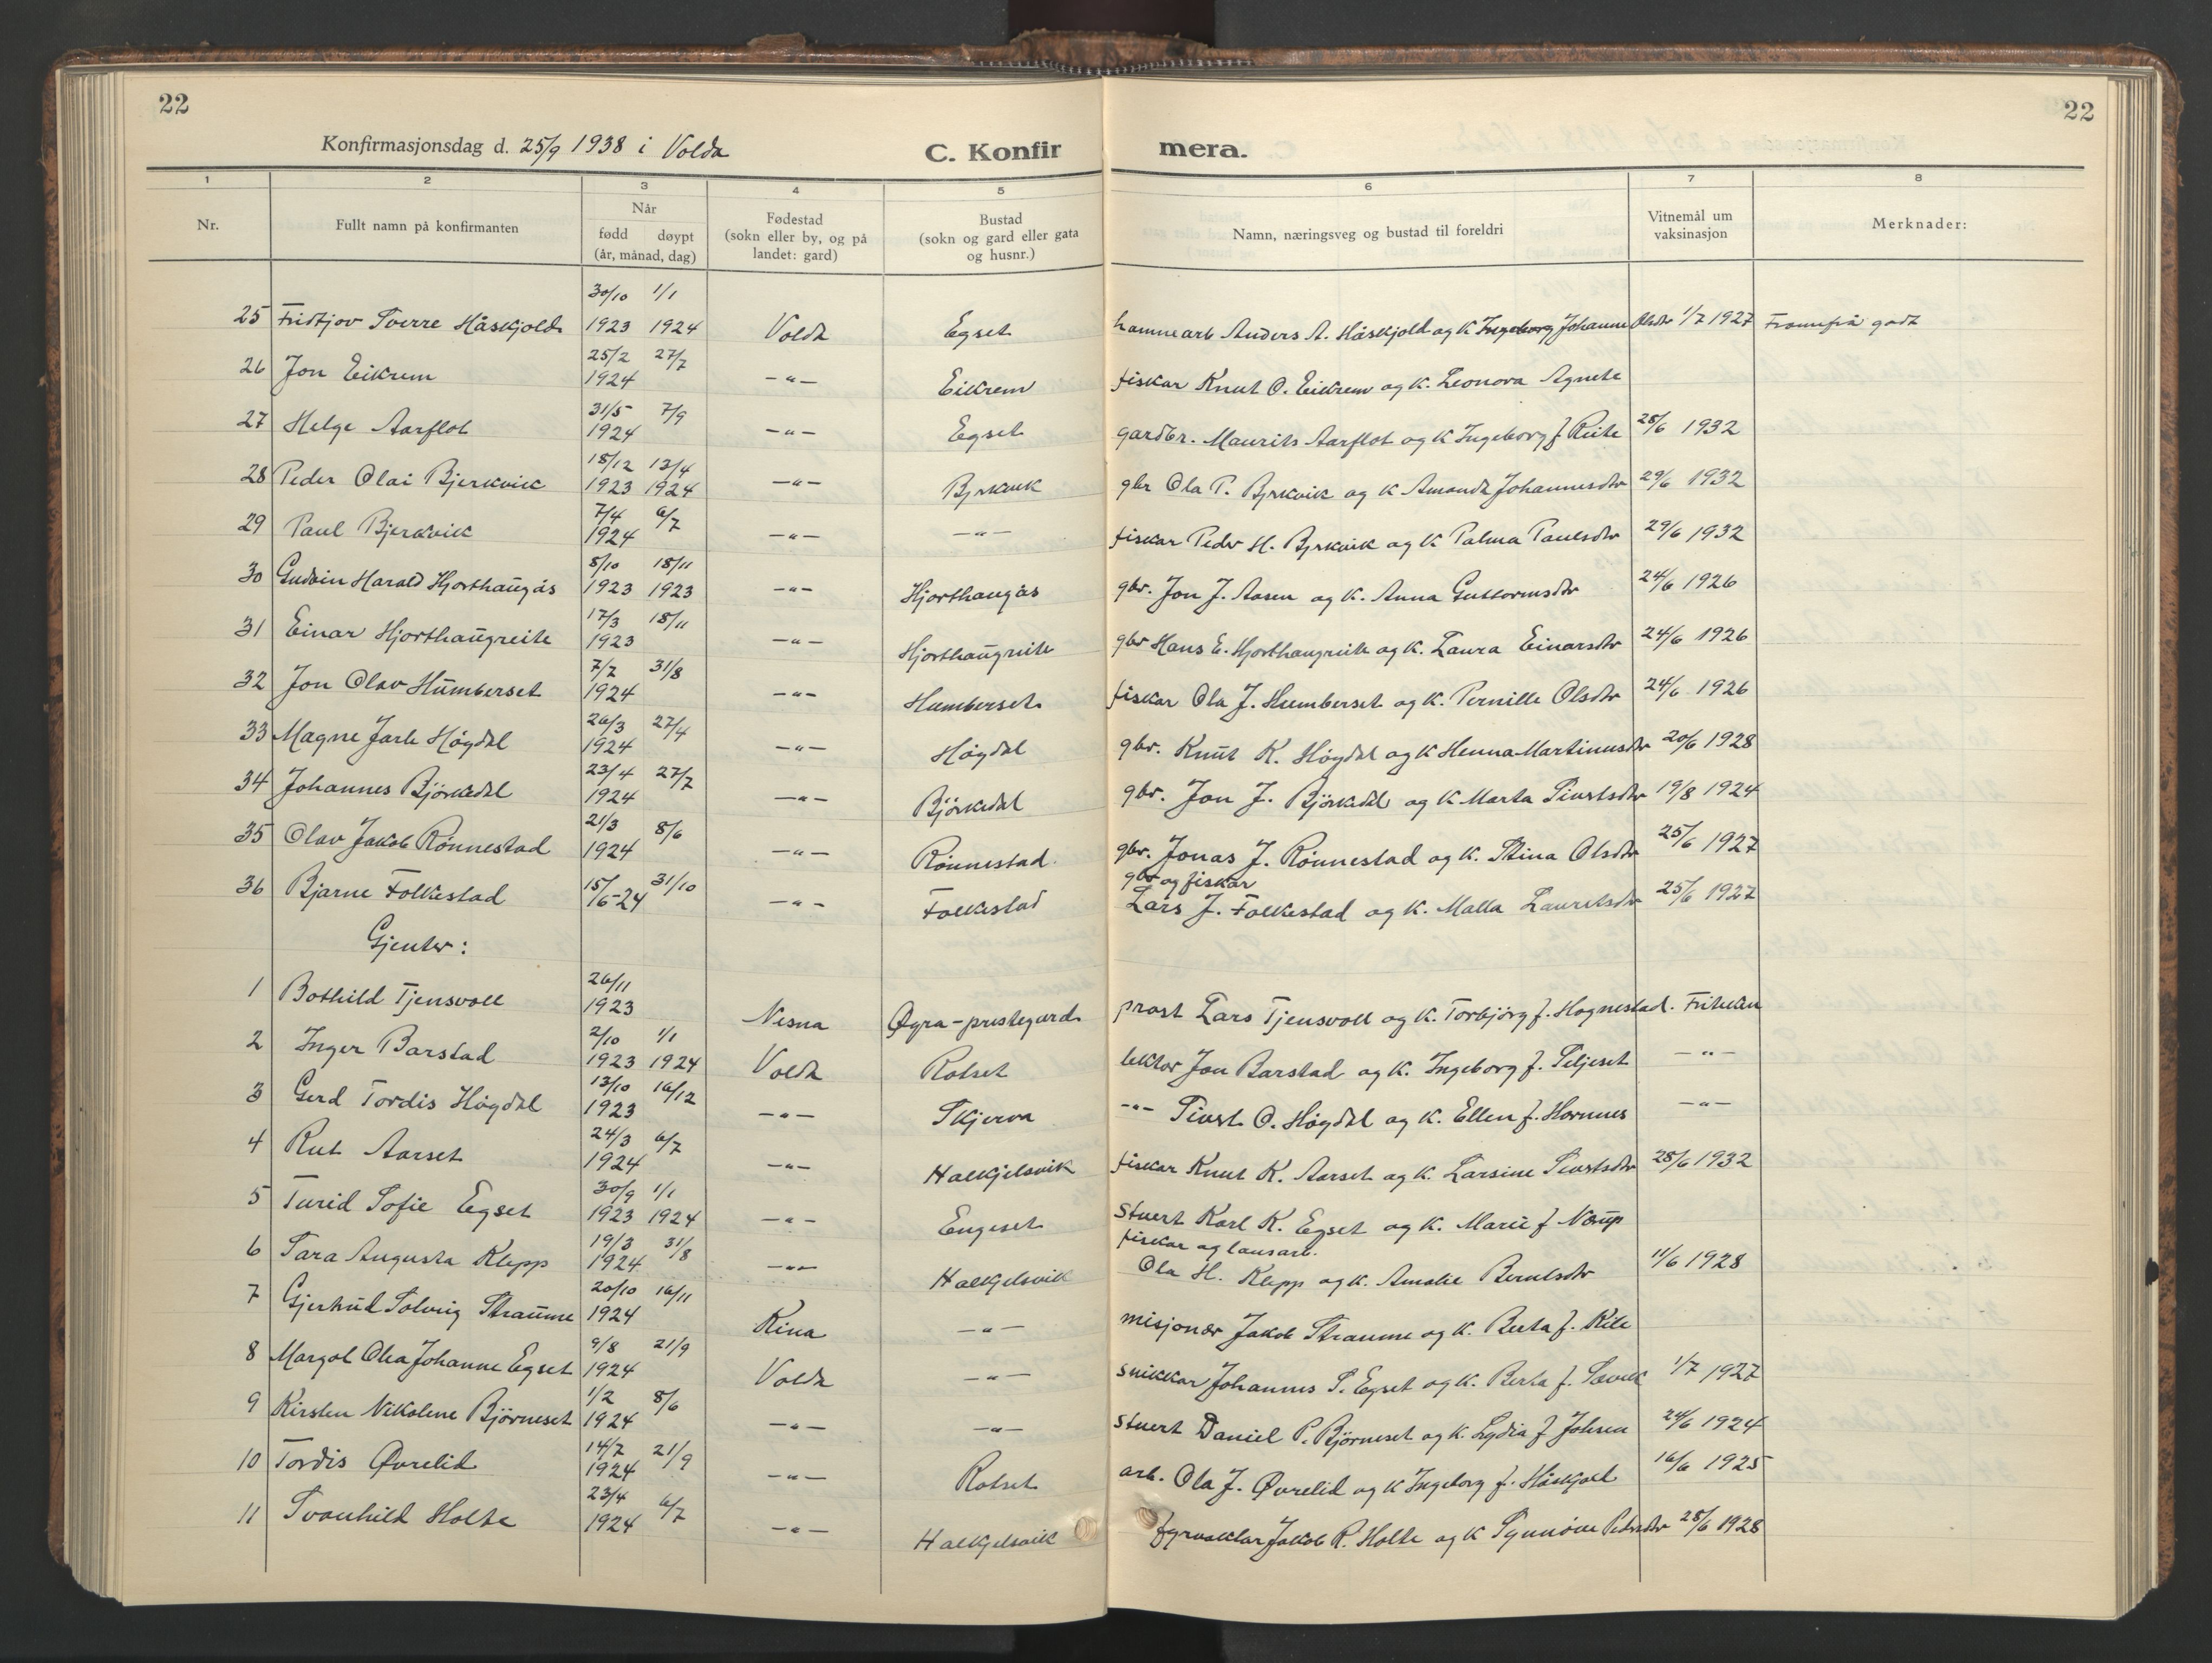 22
22
Konfirmasjonsdag d. 25/9 1938 i Volda
C. Konfir mera.
1 2 3 4 5 6 7 8
Nr. Fullt namn på konfirmanten Når fødd døypt (år, månad, dag) Fødestad (sokn eller by, og på landet: gard) Bustad (sokn og gard eller gata og husnr.) Namn, næringsveg og bustad til foreldri Vitnemål um vaksinasjon Merknader:
25 Fridtjov Sverre Håskjold 30/10 1923 1/1 1924 Volda Egset hamnearb Anders A. Håskjold og K Ingeborg Johanne Olsdtr 1/7 1927 Framifrå godt
26 Jon Eikrem 25/2 1924 27/7 -"- Eikrem fiskar Knut O. Eikrem og K. Leonora Agnete
27 Helge Aarflot 31/5 1924 7/9 -"- Egset gardbr. Maurits Aarflot og K Ingeborg f Reite 28/6 1932
28 Peder Olai Bjerkvik 18/12 1923 13/4 1924 -"- Bjrkvik gbr Ola P. Bjrkvik og K Amanda Johannesdtr 29/6 1932
29 Paul Bjerkvik 7/4 1924 6/7 -"- -"- fiskar Peder H. Bjrkvik og K Palma Paulsdtr 29/6 1932
30 Gudvin Harald Hjorthaugås 8/10 1923 18/11 1923 -"- Hjorthaugås gbr. Jon J. Aasen og K. Anna Guttormsdtr 24/6 1926
31 Einar Hjorthaugreite 17/3 1923 18/11 -"- Hjorthaugreite gbr Hans E. Hjorthaugreite og K. Laura Einarsdtr 24/6 1926
32 Jon Olav Humberset 7/7 1924 31/8 -"- Humberset fiskar Ola J. Humberset og K. Pernille Olsdtr 24/6 1926
33 Magne Jarle Høgdal 26/3 1924 27/4 -"- Høgdal gbr. Knut K. Høgdal og K Henna Martinusdtr 20/6 1928
34 Johannes Bjørkedal 23/4 1924 27/7 -"- Bjørkedal gbr. Jon J. Bjørkedal og K Marta Sivertsdtr 19/8 1924
35 Olav Jakob Rønnestad 21/3 1924 8/6 -"- Rønnestad gbr. Jonas J. Rønnestad og K. Stina Olsdtr 25/6 1927
36 Bjarne Folkestad 15/6-24 31/10 -"- Folkestad gbr og fiskar Lars J. Folkestad og K. Malla Lauritsdtr 25/6 1927
Gjenter:
1 Bothild Tjensvoll 26/11 1923 Nesna Øyra-prestegard prost Lars Tjensvoll og K. Torbjørg f. Hognestad. Friteken
2 Inger Barstad 2/10 1923 1/1 1924 Volda Rotset lektor Jon Barstad og K. Ingeborg f. Seljeset -"-
3 Gerd Tordis Høgdal 13/10 1923 16/12 -"- Skjerva -"- Sivert O. Høgdal og K. Ellen f. Hornnes -"-
4 Rut Aarset 24/3 1924 6/7 -"- Halkjelsvik fiskar Knut K. Aarset og K. Larsine Sivertsdtr 28/6 1932
5 Turid Sofie Egset 30/9 1923 1/1 1924 -"- Engeset stuert Karl K. Egset og K. Marie f Nerup
6 Sara Augusta Klepp 19/3 1924 31/8 -"- Halkjelsvik fiskar og lausarb. Ola H. Klepp og K. Amalie Berntsdtr 11/6 1928
7 Gjertrud Solveig Straume 20/10 1924 16/11 Kina -"- misjonær Jakob Straume og K. Berta f. Kile
8 Margot Olea Johanne Egset 9/8 1924 21/9 Volda -"- snikkar Johannes S. Egset og K. Berta f. Sævik 1/7 1927
9 Kirsten Nikoline Bjørneset 1/2 1924 8/6 -"- -"- stuert Daniel P. Bjørneset og K. Lydia f Johsen 24/6 1924
10 Tordis Øvrelid 14/7 1924 21/9 -"- Rotset arb. Ola J. Øvrelid og K Ingeborg f. Håskjold 16/6 1925
11 Svanhild Holte 23/4 1924 6/7 -"- Halkjelsvik fyrvaktar Jakob R. Holte og K Synnøve Pedersdtr 28/6 1928